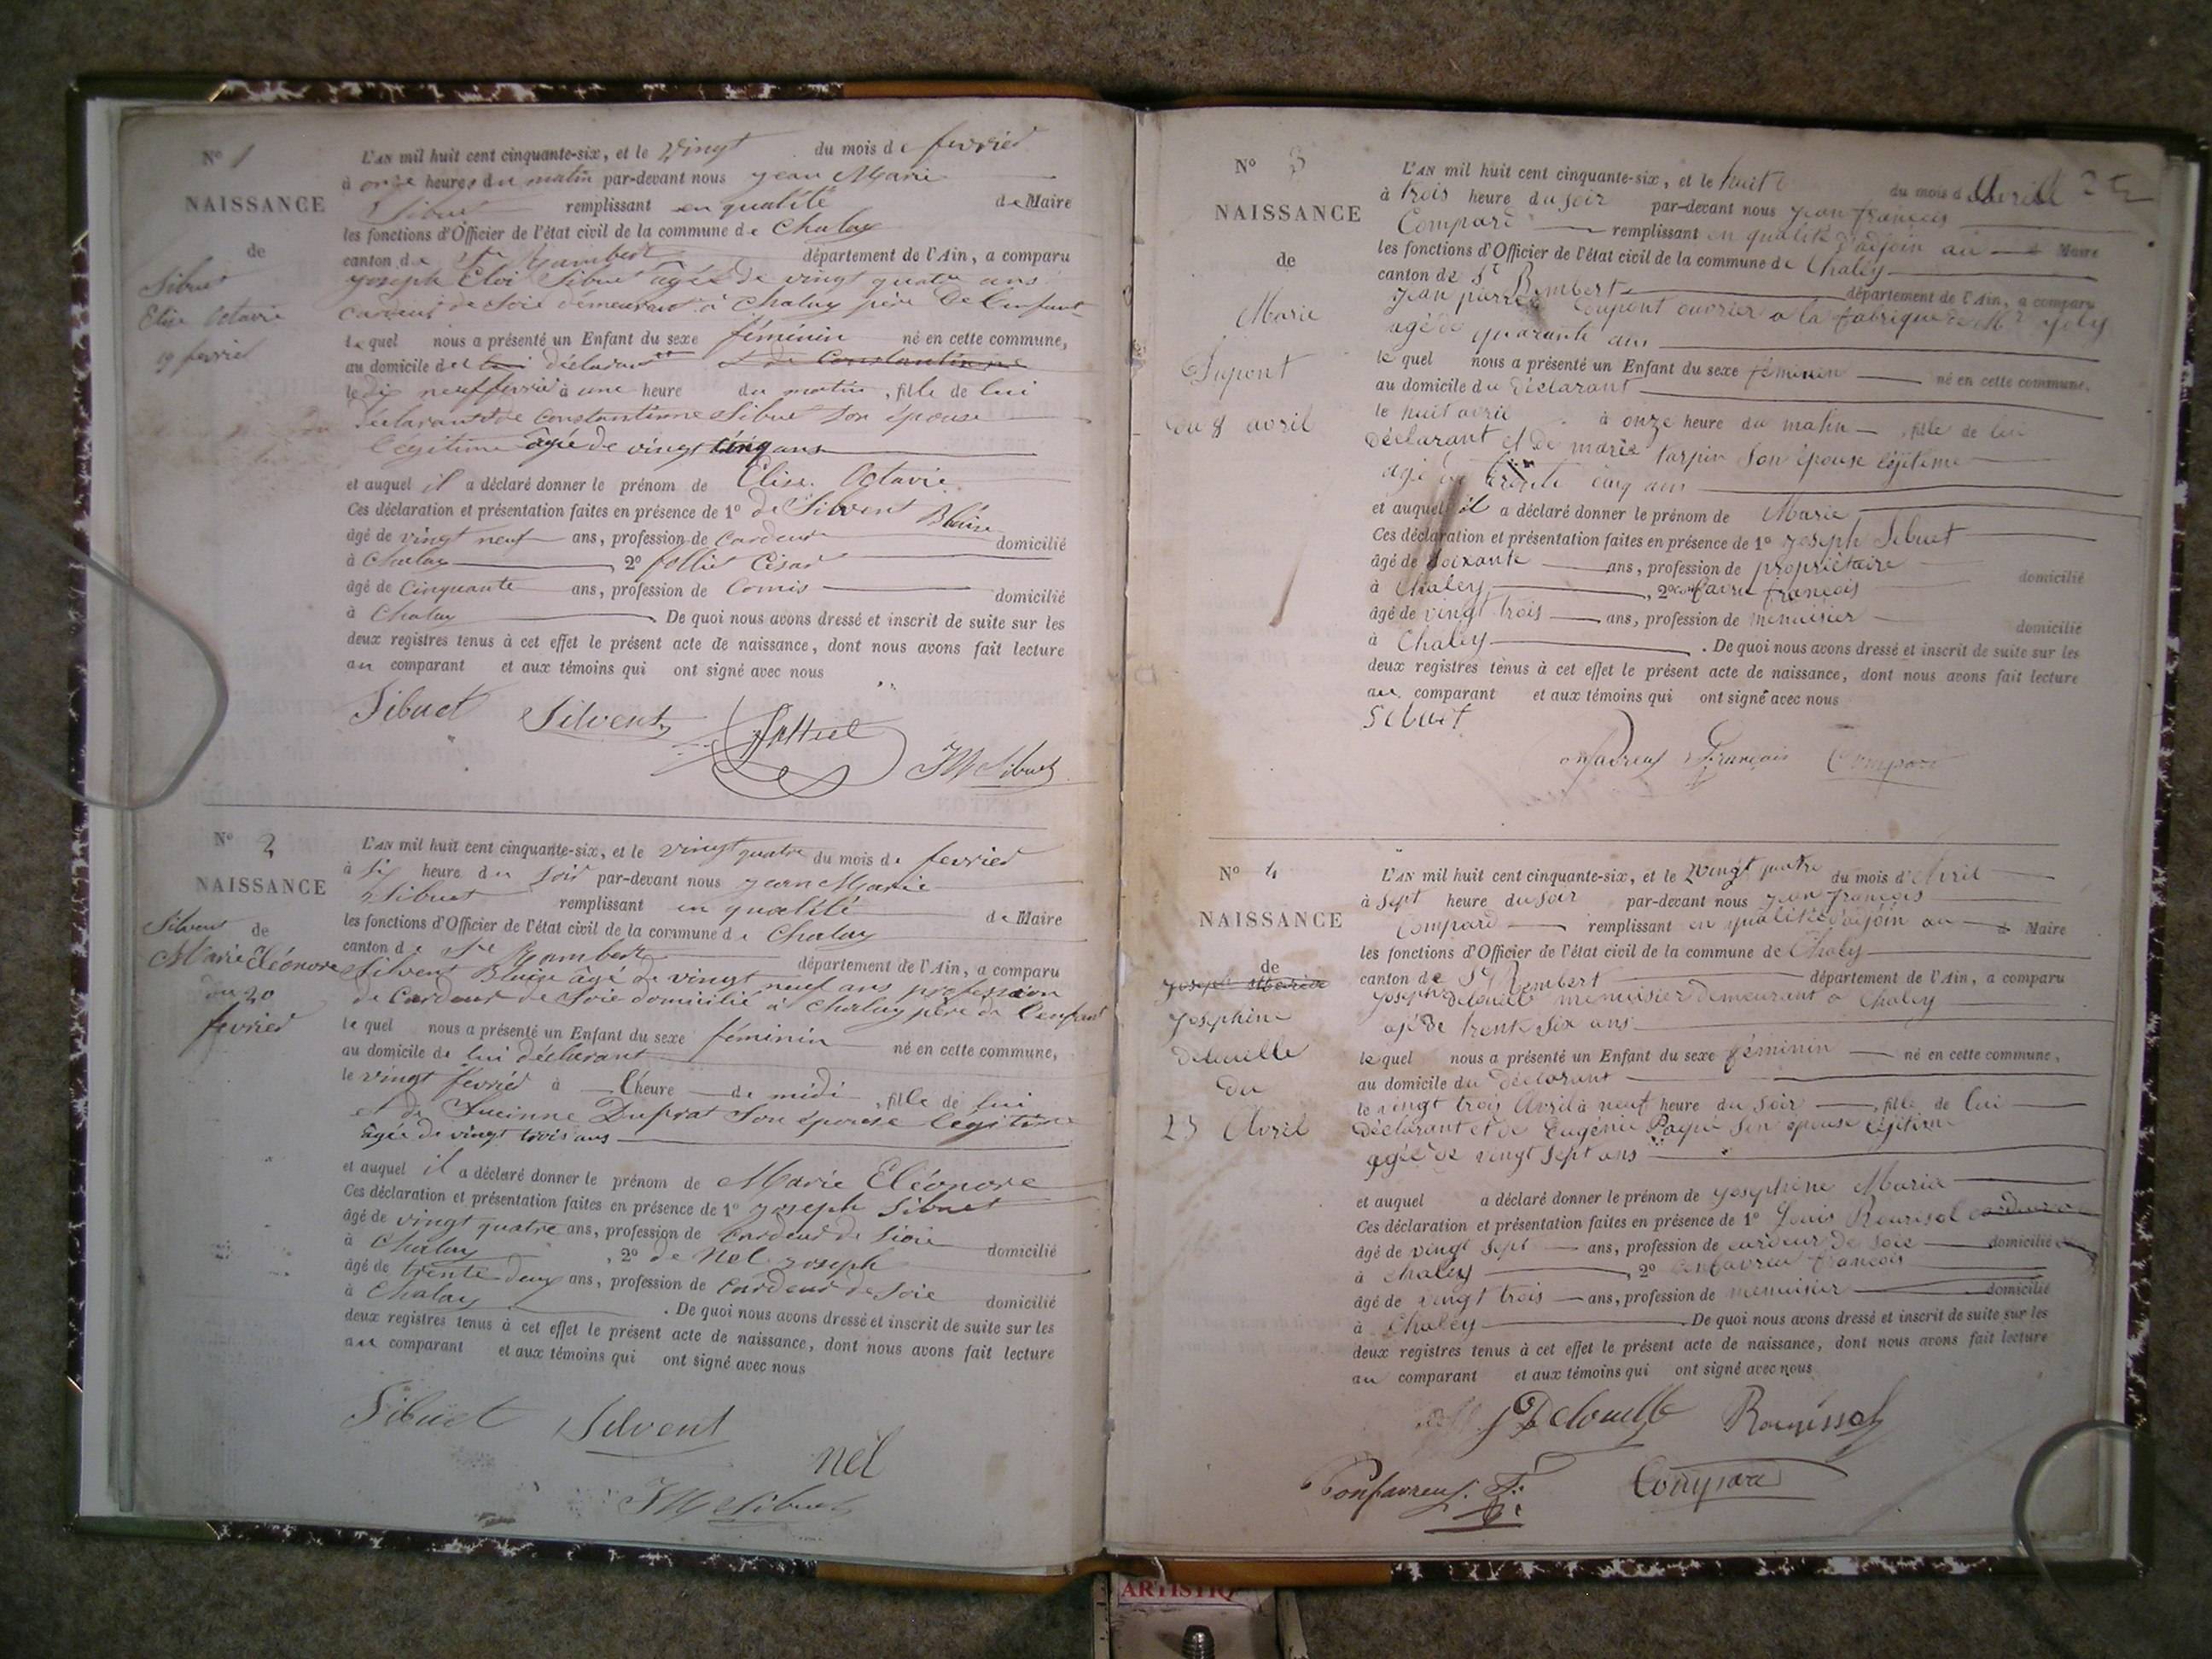 N° 1
NAISSANCE
de
Sibuet
Elise Octavie
19 fevrier
L'AN mil huit cent cinquante-six, et le vingt du mois de fevrier
à onze heures du matin par-devant nous Jean Marie
Sibuet remplissant en qualité de Maire
les fonctions d'Officier de l'état civil de la commune de Chaley
canton de St Rambert département de l'Ain, a comparu
Joseph Eloi Sibuet âgé de vingt quatre ans
cardeur de soie demeurant à Chaley père de l'enfant
lequel nous a présenté un Enfant du sexe féminin né en cette commune,
au domicile de lui déclarant et de Constantine
le dix neuf fevrier à une heure du matin, fille de lui
déclarant et de Constantinne Sibuet son épouse
légitime âgée de vingt cinq ans
et auquel il a déclaré donner le prénom de Elise Octavie
Ces déclaration et présentation faites en présence de 1° de Silvent Blaise
âgé de vingt neuf ans, profession de cardeur domicilié
à Chaley, 2° Pollet César
âgé de cinquante ans, profession de Comis domicilié
à Chaley. De quoi nous avons dressé et inscrit de suite sur les
deux registres tenus à cet effet le présent acte de naissance, dont nous avons fait lecture
au comparant et aux témoins qui ont signé avec nous
Sibuet Silvent JM Sibuet
N° 2
NAISSANCE
de
Silvent
Marie Eléonore
du 20
fevrier
L'AN mil huit cent cinquante-six, et le vingt quatre du mois de fevrier
à six heure du soir par-devant nous Jean Marie
Sibuet remplissant en qualité de Maire
les fonctions d'Officier de l'état civil de la commune de Chaley
canton de St Rambert département de l'Ain, a comparu
Silvent Blaise âgé de vingt neuf ans profession
de cardeur de soie domicilié à Chaley père de l'enfant
lequel nous a présenté un Enfant du sexe féminin né en cette commune,
au domicile de lui déclarant
le vingt fevrier à l'heure de midi, fille de lui
et de Lucinne Duprat son épouse légitime
âgée de vingt trois ans
et auquel il a déclaré donner le prénom de Marie Eléonore
Ces déclaration et présentation faites en présence de 1° Joseph Sibuet
âgé de vingt quatre ans, profession de cardeur de soie domicilié
à Chaley, 2° de Nel Joseph
âgé de trente deux ans, profession de cardeur de soie domicilié
à Chaley. De quoi nous avons dressé et inscrit de suite sur les
deux registres tenus à cet effet le présent acte de naissance, dont nous avons fait lecture
au comparant et aux témoins qui ont signé avec nous
Sibuet Silvent
nel
JM Sibuet
N° 3
NAISSANCE
de
Marie
Dupont
du 8 avril
L'AN mil huit cent cinquante-six, et le huit du mois d'Avrill
à trois heure du soir par-devant nous Jean françois
Compard remplissant en qualité d'adjoin au Maire
les fonctions d'Officier de l'état civil de la commune de Chaley
canton de St Rembert département de l'Ain, a comparu
Jean pierre Dupont ouvrier a la fabrique de Mr Joly
agé de quarante ans
lequel nous a présenté un Enfant du sexe féminin né en cette commune,
au domicile du déclarant
le huit avril à onze heure du matin, fille de lui
déclarant et de marie tarpin son épouse légitime
agé de trente cinq ans
et auquel il a déclaré donner le prénom de Marie
Ces déclaration et présentation faites en présence de 1° Joseph Sibuet
âgé de soixante ans, profession de propriétaire domicilié
à Chaley, 2° confavreu françois
âgé de vingt trois ans, profession de menuisier domicilié
à Chaley. De quoi nous avons dressé et inscrit de suite sur les
deux registres tenus à cet effet le présent acte de naissance, dont nous avons fait lecture
au comparant et aux témoins qui ont signé avec nous
Sebuet
François Compard
N° 4
NAISSANCE
de
Joseph Marie
Josephine
Delouille
du
23 Avril
L'AN mil huit cent cinquante-six, et le vingt quatre du mois d'Avril
à sept heure du soir par-devant nous Jean françois
Compard remplissant en qualité d'adjoin au Maire
les fonctions d'Officier de l'état civil de la commune de Chaley
canton de St Rembert département de l'Ain, a comparu
Joseph Delouille menuisier demeurant a Chaley
agé de trente six ans
lequel nous a présenté un Enfant du sexe féminin né en cette commune,
au domicile du déclarant
le vingt trois Avril à neuf heure du soir, fille de lui
déclarant et de Eugénie son épouse légitime
agée de vingt sept ans
et auquel a déclaré donner le prénom de Josephine Marie
Ces déclaration et présentation faites en présence de 1° Louis
âgé de vingt sept ans, profession de cardeur de soie domicilié
à Chaley, 2° confavreu francois
âgé de vingt trois ans, profession de menuisier domicilié
à Chaley. De quoi nous avons dressé et inscrit de suite sur les
deux registres tenus à cet effet le présent acte de naissance, dont nous avons fait lecture
au comparant et aux témoins qui ont signé avec nous
J Delouille
Confavreux F. Compard
ARTISTIQ